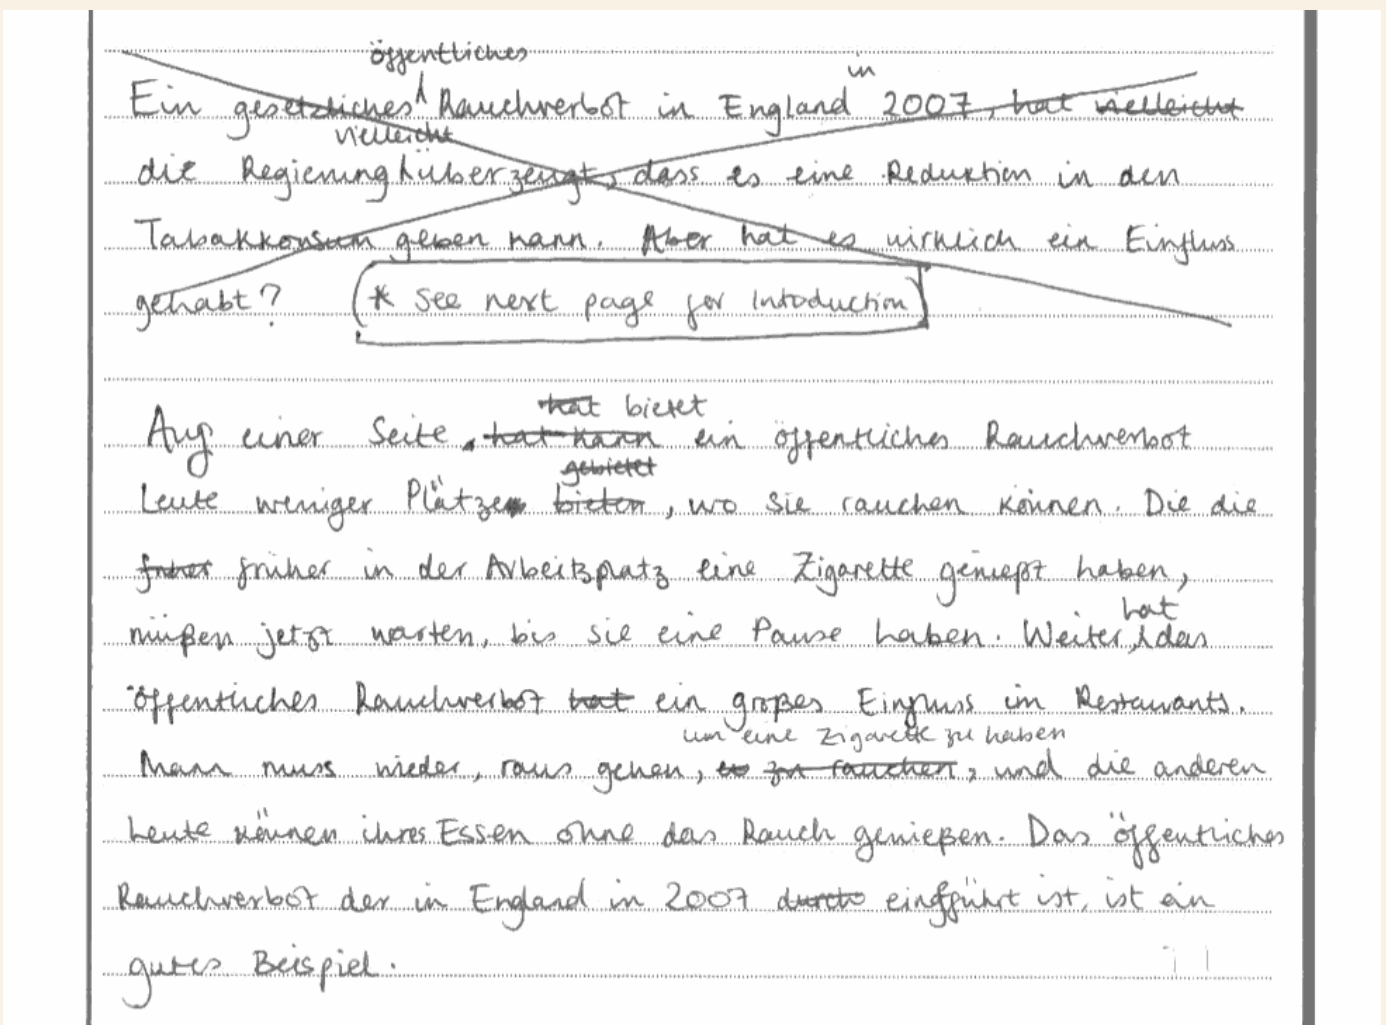 öffentliches
Ein gesetzliches Rauchverbot in England in 2007, hat vielleicht
vielleicht
die Regierung überzeugt, dass es eine Reduktion in den
Tabakkonsum geben kann. Aber hat es wirklich ein Einfluss
gehabt? (* See next page for Intoduction)
hat bietet
Auf einer Seite hat kann ein öffentliches Rauchverbot
gebietet
Leute weniger Plätze bieten, wo sie rauchen können. Die die
früher früher in der Arbeitsplatz eine Zigarette genießt haben,
müßen jetzt warten, bis sie eine Pause haben. Weiter, hat das
öffentliches Rauchverbot hat ein großes Einfluss im Restaurants.
um eine Zigarette zu haben
Mann muss wieder, raus gehen, zu rauchen, und die anderen
Leute können ihres Essen ohne das Rauch genießen. Das öffentliches
Rauchverbot der in England in 2007 durch eingführt ist, ist ein
gutes Beispiel.